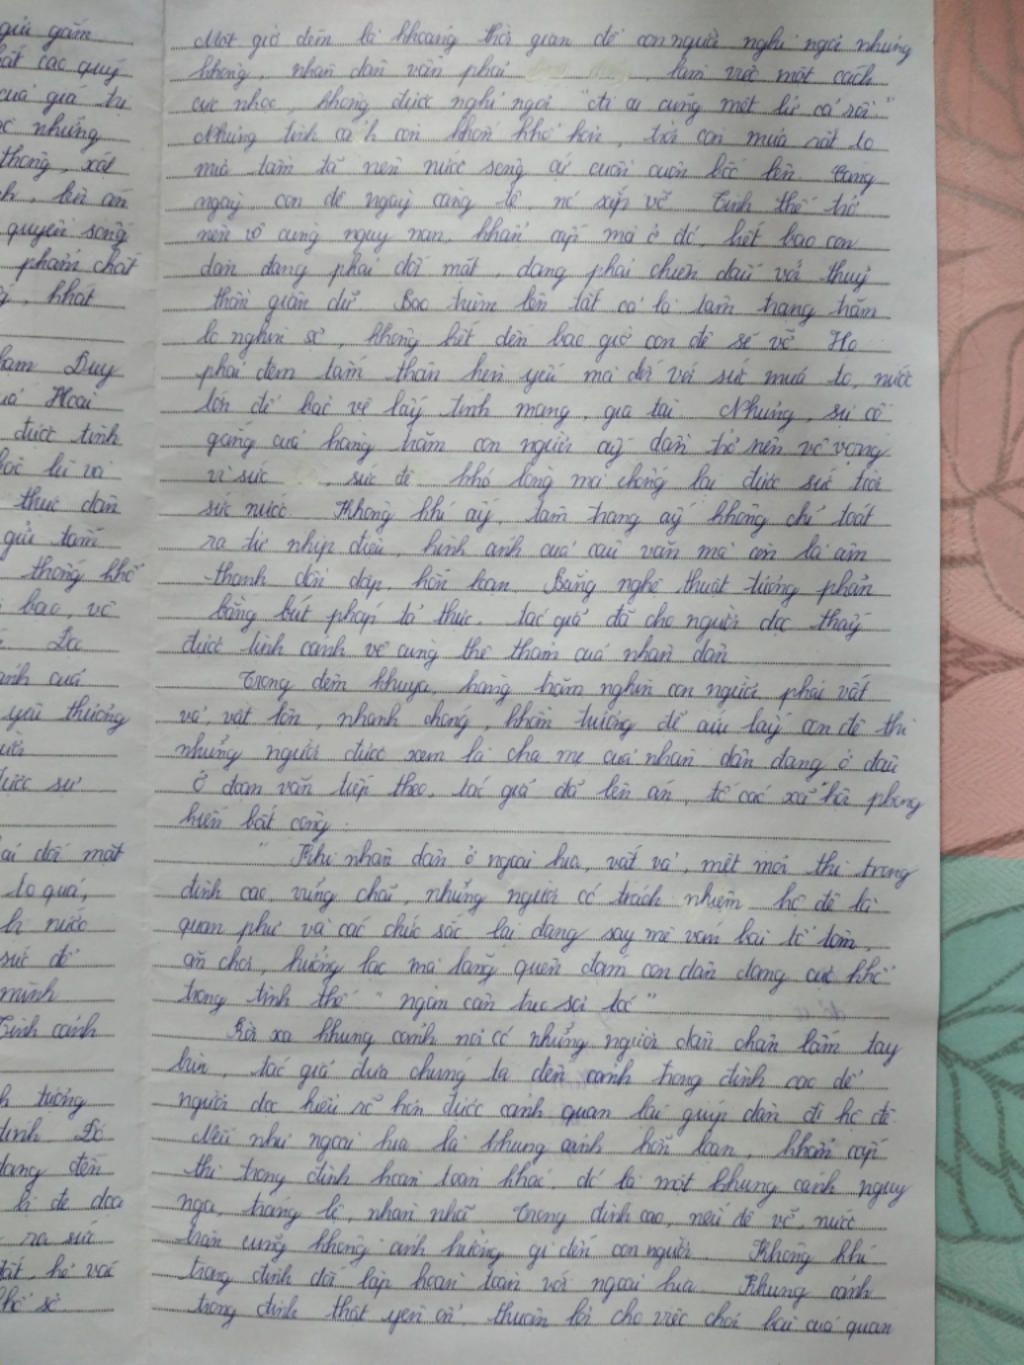 giả gắm
bắt các quý
của giá trị
ọc những
thông, xót
h, lên án
quyền sống
phẩm chất
, khát
Phạm Duy
Hoài
được tình
bọc lũ và
thực dân
gửi tấm
thống khổ
bao, vô
ảnh của
yêu thương
được sự
ai đối mặt
to quá,
h nước
sức để
mình
Tình cảnh
h tưởng
đình Đó
đang đến
bị đe doạ
ra sức
đất, hộ vác
Một giờ đêm là khoảng thời gian để con người nghỉ ngơi nhưng
không, nhân dân vẫn phải làm việc một cách
cực nhọc, không được nghỉ ngơi "ai ai cũng mệt lử cả rồi."
Nhưng tình cảnh còn khốn khổ hơn, trời còn mưa rất to
mưa tầm tã nên nước sông cứ cuồn cuộn bốc lên. Càng
ngày con đê ngày càng lệ, nó sắp vỡ Tình thế trở
nên vô cùng nguy nan, khẩn cấp mà ở đó, biết bao con
dân đang phải đối mặt, đang phải chiến đấu với thuỷ
thần giận dữ. Bao trùm lên tất cả là tâm trạng trăm
lo nghìn sợ, không biết đến bao giờ con đê sẽ vỡ Họ
phải đem tấm thân hèn yếu mà đối với sức mưa to, nước
lớn để bảo vệ lấy tính mạng, gia tài Nhưng, sự cố
gắng của hàng trăm con người ấy dần trở nên vô vọng
vì sức , sức đê khó lòng mà chống lại được sức trời
sức nước Không khí ấy, tâm trạng ấy không chỉ toát
ra từ nhịp điệu, hình ảnh của câu văn mà còn là âm
thanh dồn dập, hỗn loạn. Bằng nghệ thuật tương phản
bằng bút pháp tả thực, tác giả đã cho người đọc thấy
được tình cảnh vô cùng thê thảm của nhân dân
Trong đêm khuya, hàng trăm nghìn con người phải vất
vả, vật lộn, nhanh chóng, khẩn trương để cứu lấy con đê thì
những người được xem là cha mẹ của nhân dân đang ở đâu
Ở đoạn văn tiếp theo, tác giả đã lên án, tố cáo xã hội phong
kiến bất công:
" Khi nhân dân ở ngoài kia, vất vả, mệt mỏi thì trong
đình cao, vững chãi, những người có trách nhiệm hộ đê là
quan phụ và các chức sắc lại đang say mê ván bài tổ tôm,
ăn chơi, hưởng lạc mà lãng quên đám con dân đang cực khổ
trong tình thế "ngàn cân treo sợi tóc"
Rời xa khung cảnh nơi có những người dân chân lấm tay
bùn, tác giả đưa chúng ta đến cảnh trong đình cao để
người đọc hiểu rõ hơn được cảnh quan lại giúp dân đi hộ đê
Nếu như ngoài kia là khung cảnh hỗn loạn, khẩn cấp
thì trong đình hoàn toàn khác, đó là một khung cảnh nguy
nga, tráng lệ, nhàn nhã Trong đình cao, nếu đê vỡ, nước
tràn cũng không ảnh hưởng gì đến con người Không khí
trong đình đối lập hoàn toàn với ngoài kia. Khung cảnh
trong đình thật yên ổn, thuận lợi cho việc chơi bài của quan